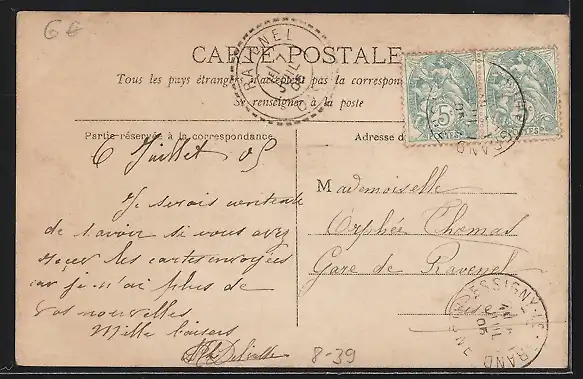 6€
CARTE POSTALE
Tous les pays étrangers n'acceptent pas la correspon
Se renseigner à la poste
RAVENEL
OISE
5
Partie réservée à la correspondance
Adresse d
6 Juillet 05
Je serais contente
de savoir si vous avez
reçu les cartes envoyées
car je n'ai plus de
vos nouvelles
Mille baisers
Mademoiselle
Orphée Thomas
Gare de Ravenel
Oise
ESSIGNY-LE-GRAND
AISNE
8-39